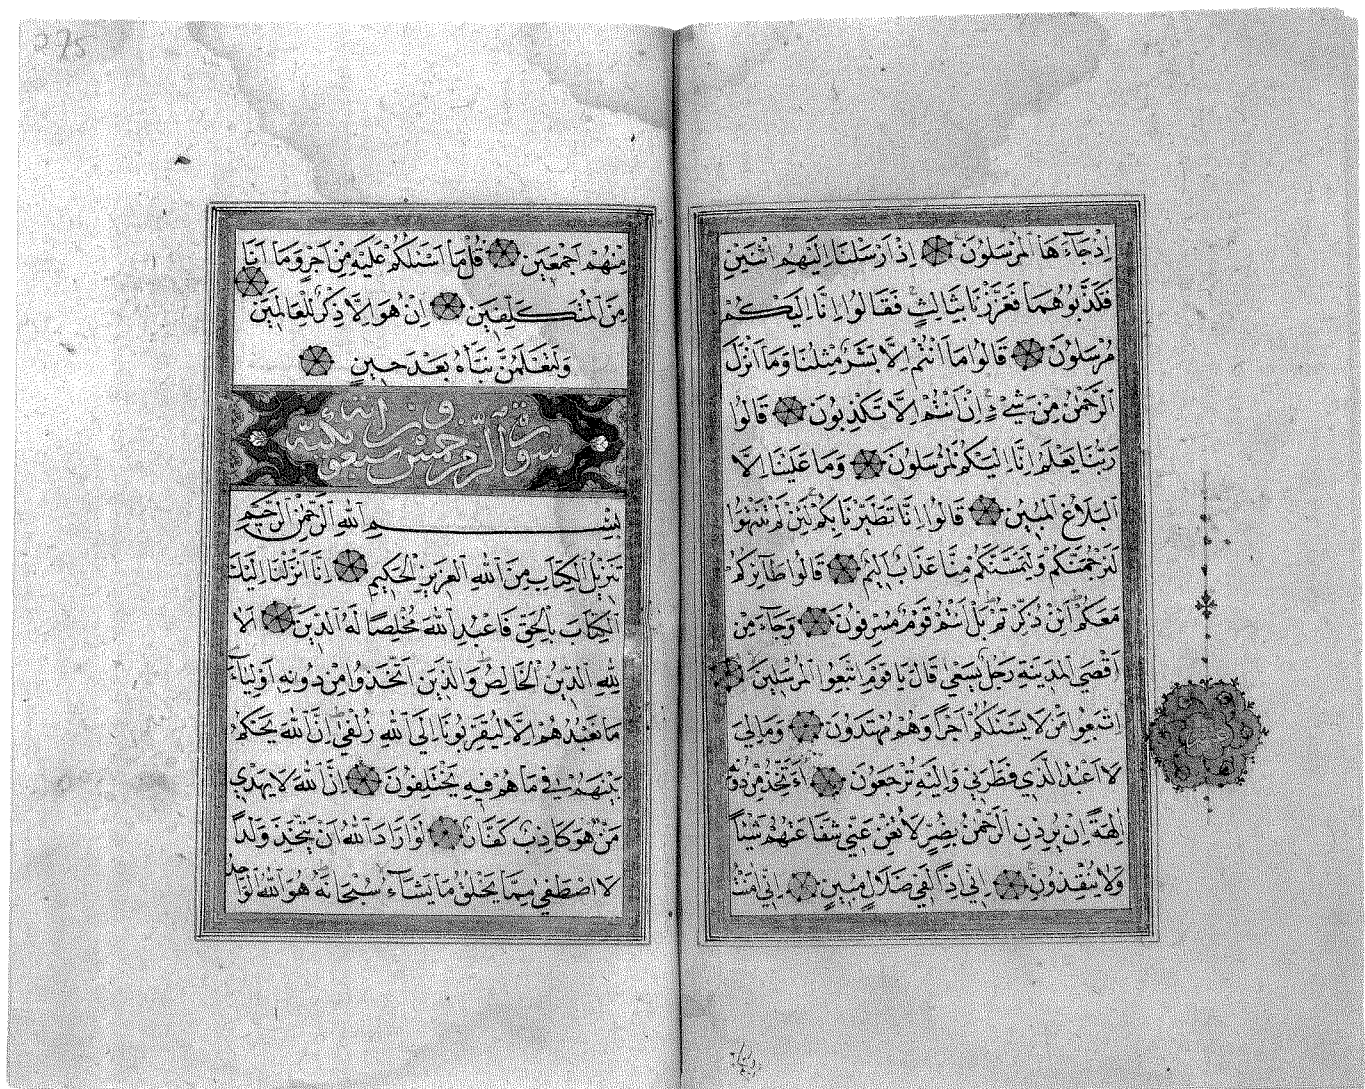 اِذْجَآءَهَا الْمُرْسَلُونَ اِذْ اَرْسَلْنَا اِلَيْهِمِ اثْنَيْنِ
فَكَذَّبُوهُمَا فَعَزَّزْنَا بِثَالِثٍ فَقَالُوا اِنَّا اِلَيْكُمْ
مُرْسَلُونَ قَالُوا مَا اَنْتُمْ اِلَّا بَشَرٌ مِثْلُنَا وَمَا اَنْزَلَ
الرَّحْمٰنُ مِنْ شَيْءٍ اِنْ اَنْتُمْ اِلَّا تَكْذِبُونَ قَالُوا
رَبُّنَا يَعْلَمُ اِنَّا اِلَيْكُمْ لَمُرْسَلُونَ وَمَا عَلَيْنَا اِلَّا
الْبَلَاغُ الْمُبِينُ قَالُوا اِنَّا تَطَيَّرْنَا بِكُمْ لَئِنْ لَمْ تَنْتَهُوا
لَنَرْجُمَنَّكُمْ وَلَيَمَسَّنَّكُمْ مِنَّا عَذَابٌ اَلِيمٌ قَالُوا طَآئِرُكُمْ
مَعَكُمْ اَئِنْ ذُكِّرْتُمْ بَلْ اَنْتُمْ قَوْمٌ مُسْرِفُونَ وَجَآءَ مِنْ
اَقْصَى الْمَدِينَةِ رَجُلٌ يَسْعٰى قَالَ يَا قَوْمِ اتَّبِعُوا الْمُرْسَلِينَ
اتَّبِعُوا مَنْ لَا يَسْئَلُكُمْ اَجْرًا وَهُمْ مُهْتَدُونَ وَمَا لِيَ
لَا اَعْبُدُ الَّذِي فَطَرَنِي وَاِلَيْهِ تُرْجَعُونَ ءَاَتَّخِذُ مِنْ دُونِهِ
اٰلِهَةً اِنْ يُرِدْنِ الرَّحْمٰنُ بِضُرٍّ لَا تُغْنِ عَنِّي شَفَاعَتُهُمْ شَيْئًا
وَلَا يُنْقِذُونِ اِنِّي اِذًا لَفِي ضَلَالٍ مُبِينٍ اِنِّي اٰمَنْتُ
مِنْهُمْ اَجْمَعِينَ قُلْ مَا اَسْئَلُكُمْ عَلَيْهِ مِنْ اَجْرٍ وَمَا اَنَا
مِنَ الْمُتَكَلِّفِينَ اِنْ هُوَ اِلَّا ذِكْرٌ لِلْعَالَمِينَ
وَلَتَعْلَمُنَّ نَبَاَهُ بَعْدَ حِينٍ
سورة الزمر خمس وسبعون اية مكية
بِسْمِ اللهِ الرَّحْمٰنِ الرَّحِيمِ
تَنْزِيلُ الْكِتَابِ مِنَ اللهِ الْعَزِيزِ الْحَكِيمِ اِنَّا اَنْزَلْنَا اِلَيْكَ
الْكِتَابَ بِالْحَقِّ فَاعْبُدِ اللهَ مُخْلِصًا لَهُ الدِّينَ اَلَا
لِلهِ الدِّينُ الْخَالِصُ وَالَّذِينَ اتَّخَذُوا مِنْ دُونِهِ اَوْلِيَآءَ
مَا نَعْبُدُهُمْ اِلَّا لِيُقَرِّبُونَا اِلَى اللهِ زُلْفٰى اِنَّ اللهَ يَحْكُمُ
بَيْنَهُمْ فِي مَا هُمْ فِيهِ يَخْتَلِفُونَ اِنَّ اللهَ لَا يَهْدِي
مَنْ هُوَ كَاذِبٌ كَفَّارٌ لَوْ اَرَادَ اللهُ اَنْ يَتَّخِذَ وَلَدًا
لَا اصْطَفٰى مِمَّا يَخْلُقُ مَا يَشَآءُ سُبْحَانَهُ هُوَ اللهُ الْوَاحِدُ